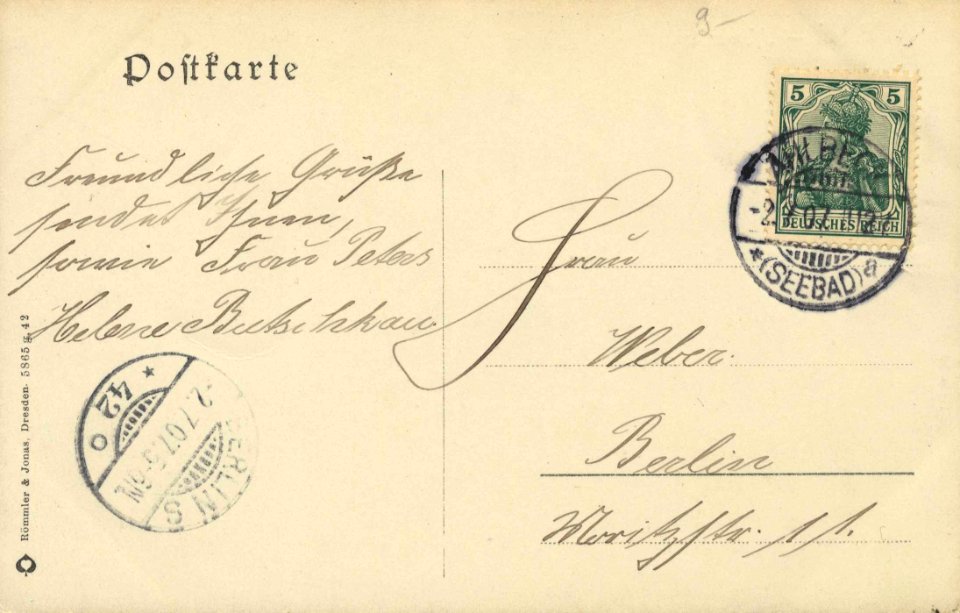 9-
Postkarte
5 5
DEUTSCHES REICH
AHLBECK
-2.7.07. 11-12V
*(SEEBAD)a
Freundliche Grüße
sendet Ihnen,
sowie Frau Peters
Helene
Frau
Weber.
Berlin
Moritzstr. 11.
BERLIN S
-2.7.07. 5-6N.
* 42 o
Römmler & Jonas, Dresden 5865 g. 42